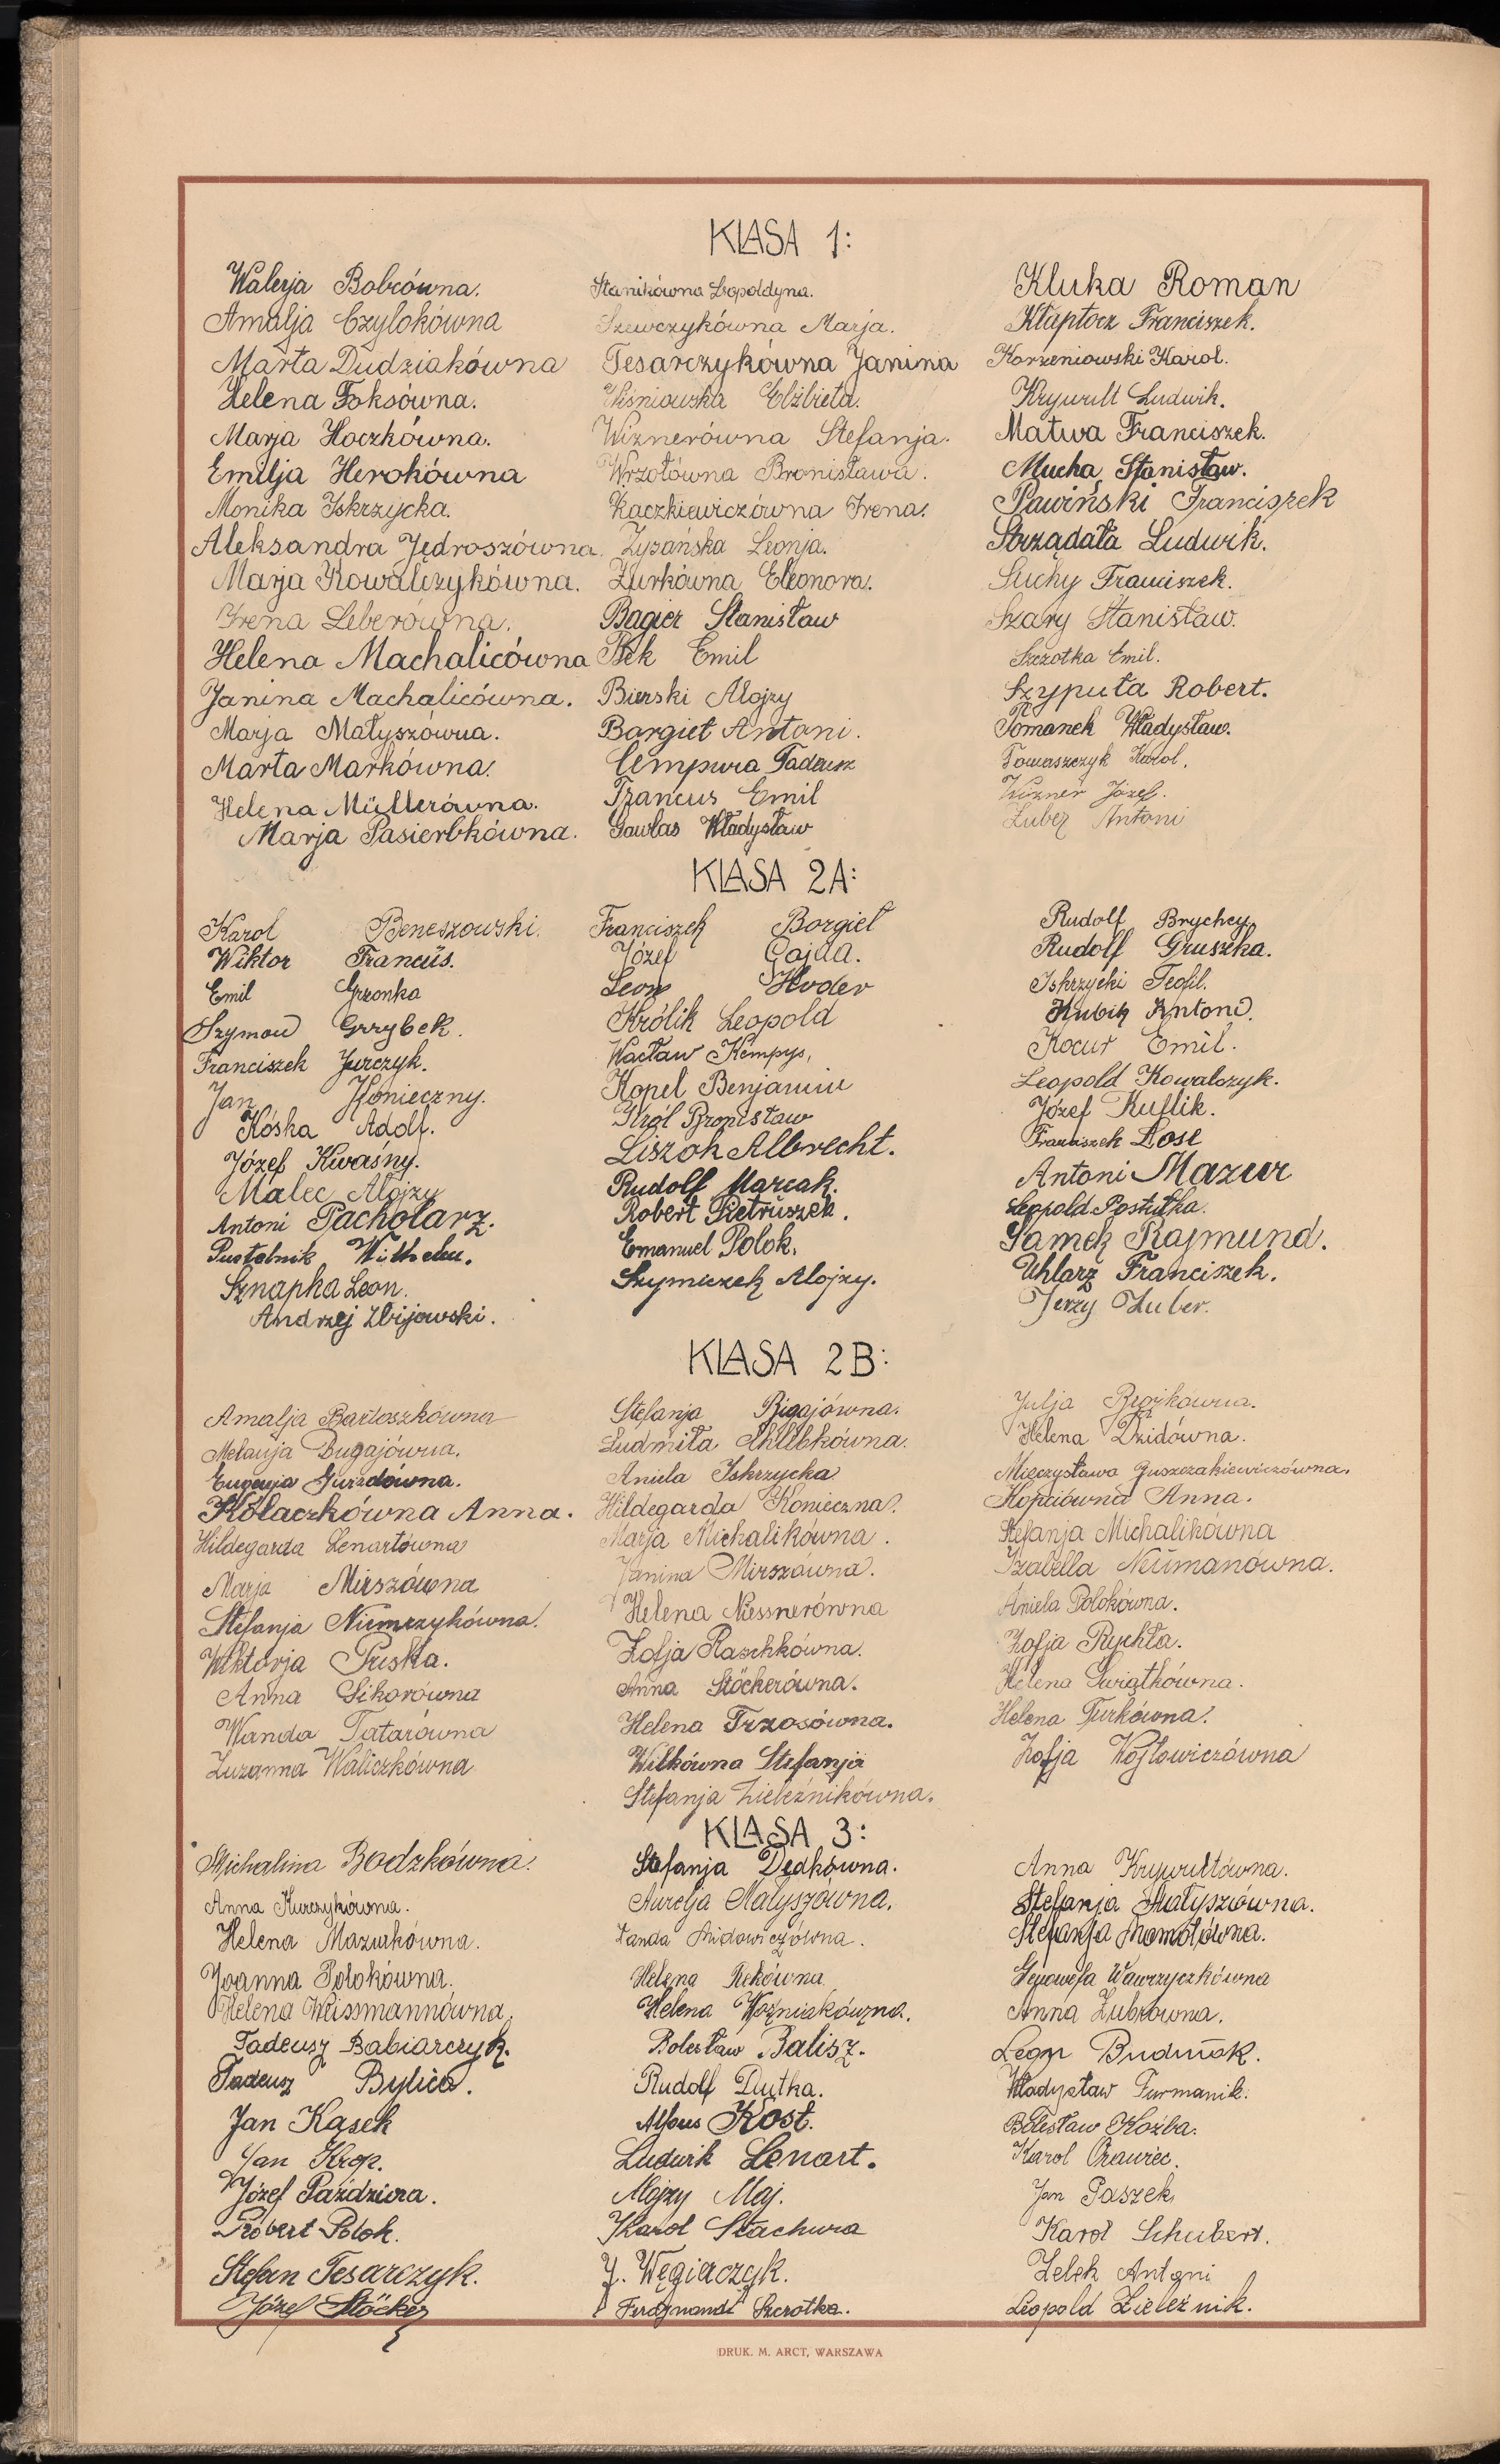 KLASA 1:
Walerja Bobrówna.
Amalja Czylokówna
Marta Dudziakówna
Helena Foksówna.
Marja Hoczkówna.
Emilja Herokówna
Monika Iskrzycka.
Aleksandra Jędroszówna.
Marja Kowalczykówna.
Irena Leberówna.
Helena Machalicówna
Janina Machalicówna.
Marja Małyszówna.
Marta Markówna.
Helena Müllerówna.
Marja Pasierbkówna.
Stanikówna Leopoldyna.
Szewczykówna Marja.
Tesarczykówna Janina
Wiśniowska Elżbieta.
Wiznerówna Stefanja.
Wrzołówna Bronisława.
Kaczkiewiczówna Irena.
Zyzańska Leonja.
Żurkówna Eleonora.
Bagier Stanisław
Bek Emil
Bierski Alojzy
Bargieł Antoni.
Cempura Tadeusz
Francus Emil
Gawlas Władysław
Kluka Roman
Kłaptocz Franciszek.
Korzeniowski Karol.
Krywult Ludwik.
Matwa Franciszek.
Mucha Stanisław.
Pawiński Franciszek
Strządała Ludwik.
Suchy Franciszek.
Szary Stanisław.
Szczotka Emil.
Szypuła Robert.
Tomanek Władysław.
Tomaszczyk Karol.
Wizner Józef.
Zuber Antoni
KLASA 2A:
Karol Beneszowski.
Wiktor Francüs.
Emil Grzonka
Szymon Grzybek.
Franciszek Jurczyk.
Jan Konieczny.
Kóska Adolf.
Józef Kwaśny.
Malec Alojzy
Antoni Pacholarz.
Pustelnik Wilhelm.
Sznapka Leon.
Andrzej Zbijowski.
Franciszek Borgieł
Józef Gajda.
Leon Hoder
Królik Leopold
Wacław Kempys,
Kopel Benjamin
Król Bronisław
Liszok Albrecht.
Rudolf Marcak.
Robert Pietruszek.
Emanuel Polok.
Szymiczek Alojzy.
Rudolf Brychcy.
Rudolf Gruszka.
Iskrzycki Teofil.
Kubik Antoni.
Kocur Emil.
Leopold Kowalczyk.
Józef Kuflik.
Franciszek Lose
Antoni Mazur
Leopold Postutka.
Samek Rajmund.
Uhlarz Franciszek.
Jerzy Zuber.
KLASA 2B:
Amalja Bartoszkówna
Melanja Bugajówna.
Eugenja Guzdówna.
Kołaczkówna Anna.
Hildegarda Lenartówna
Marja Mirszówna
Stefanja Niemczykówna.
Wiktorja Puska.
Anna Sikorówna
Wanda Tatarówna
Zuzanna Waliczkówna
Stefanja Bigajówna.
Ludmiła Chlebkówna.
Aniela Iskrzycka
Hildegarda Konieczna.
Marja Michalikówna.
Janina Mirszówna.
Helena Niessnerówna
Zofja Raschkówna.
Anna Stöckerówna.
Helena Trzosówna.
Wilkówna Stefanja
Stefanja Zieleźnikówna.
Julja Brożkówna.
Helena Dzidówna.
Mieczysława Guszczakiewiczówna.
Kopciówna Anna.
Stefanja Michalikówna
Izabella Neümanówna.
Aniela Polokówna.
Zofja Rychła.
Helena Świątkówna.
Helena Turkówna.
Zofja Wojtowiczówna
KLASA 3:
Michalina Bodzkówna.
Anna Kurczykówna.
Helena Mazurkówna.
Joanna Polokówna.
Helena Weissmannówna.
Tadeusz Babiarczyk.
Tadeusz Bylica.
Jan Kąsek
Jan Krop.
Józef Paździora.
Robert Polok.
Stefan Tesarczyk.
Józef Stöcker
Stefanja Dędkówna.
Aurelja Małyszówna.
Wanda Midowiczówna.
Helena Rekówna
Helena Woźniakówna.
Bolesław Balisz.
Rudolf Dutka.
Alfons Kost.
Ludwik Lenart.
Alojzy Maj.
Karol Stachura
J. Węgierczyk.
Ferdynand Szczotka.
Anna Krywultówna.
Stefanja Małyszówna.
Stefanja Momotówna.
Genowefa Wawrzyczkówna
Anna Zubrówna.
Leon Budniok.
Władysław Furmanik.
Bolesław Koźba.
Karol Orawiec.
Jan Paszek
Karol Schubert.
Zelek Antoni
Leopold Zieleźnik.
DRUK. M. ARCT, WARSZAWA